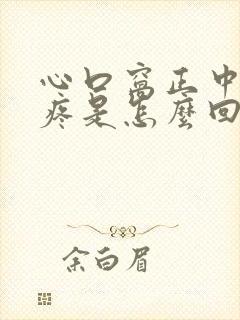 心口窩正中
疼是怎麼回
余白眉